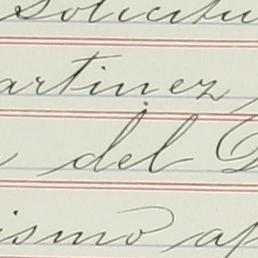 Solicitu
artinez,
del D
ismo ap